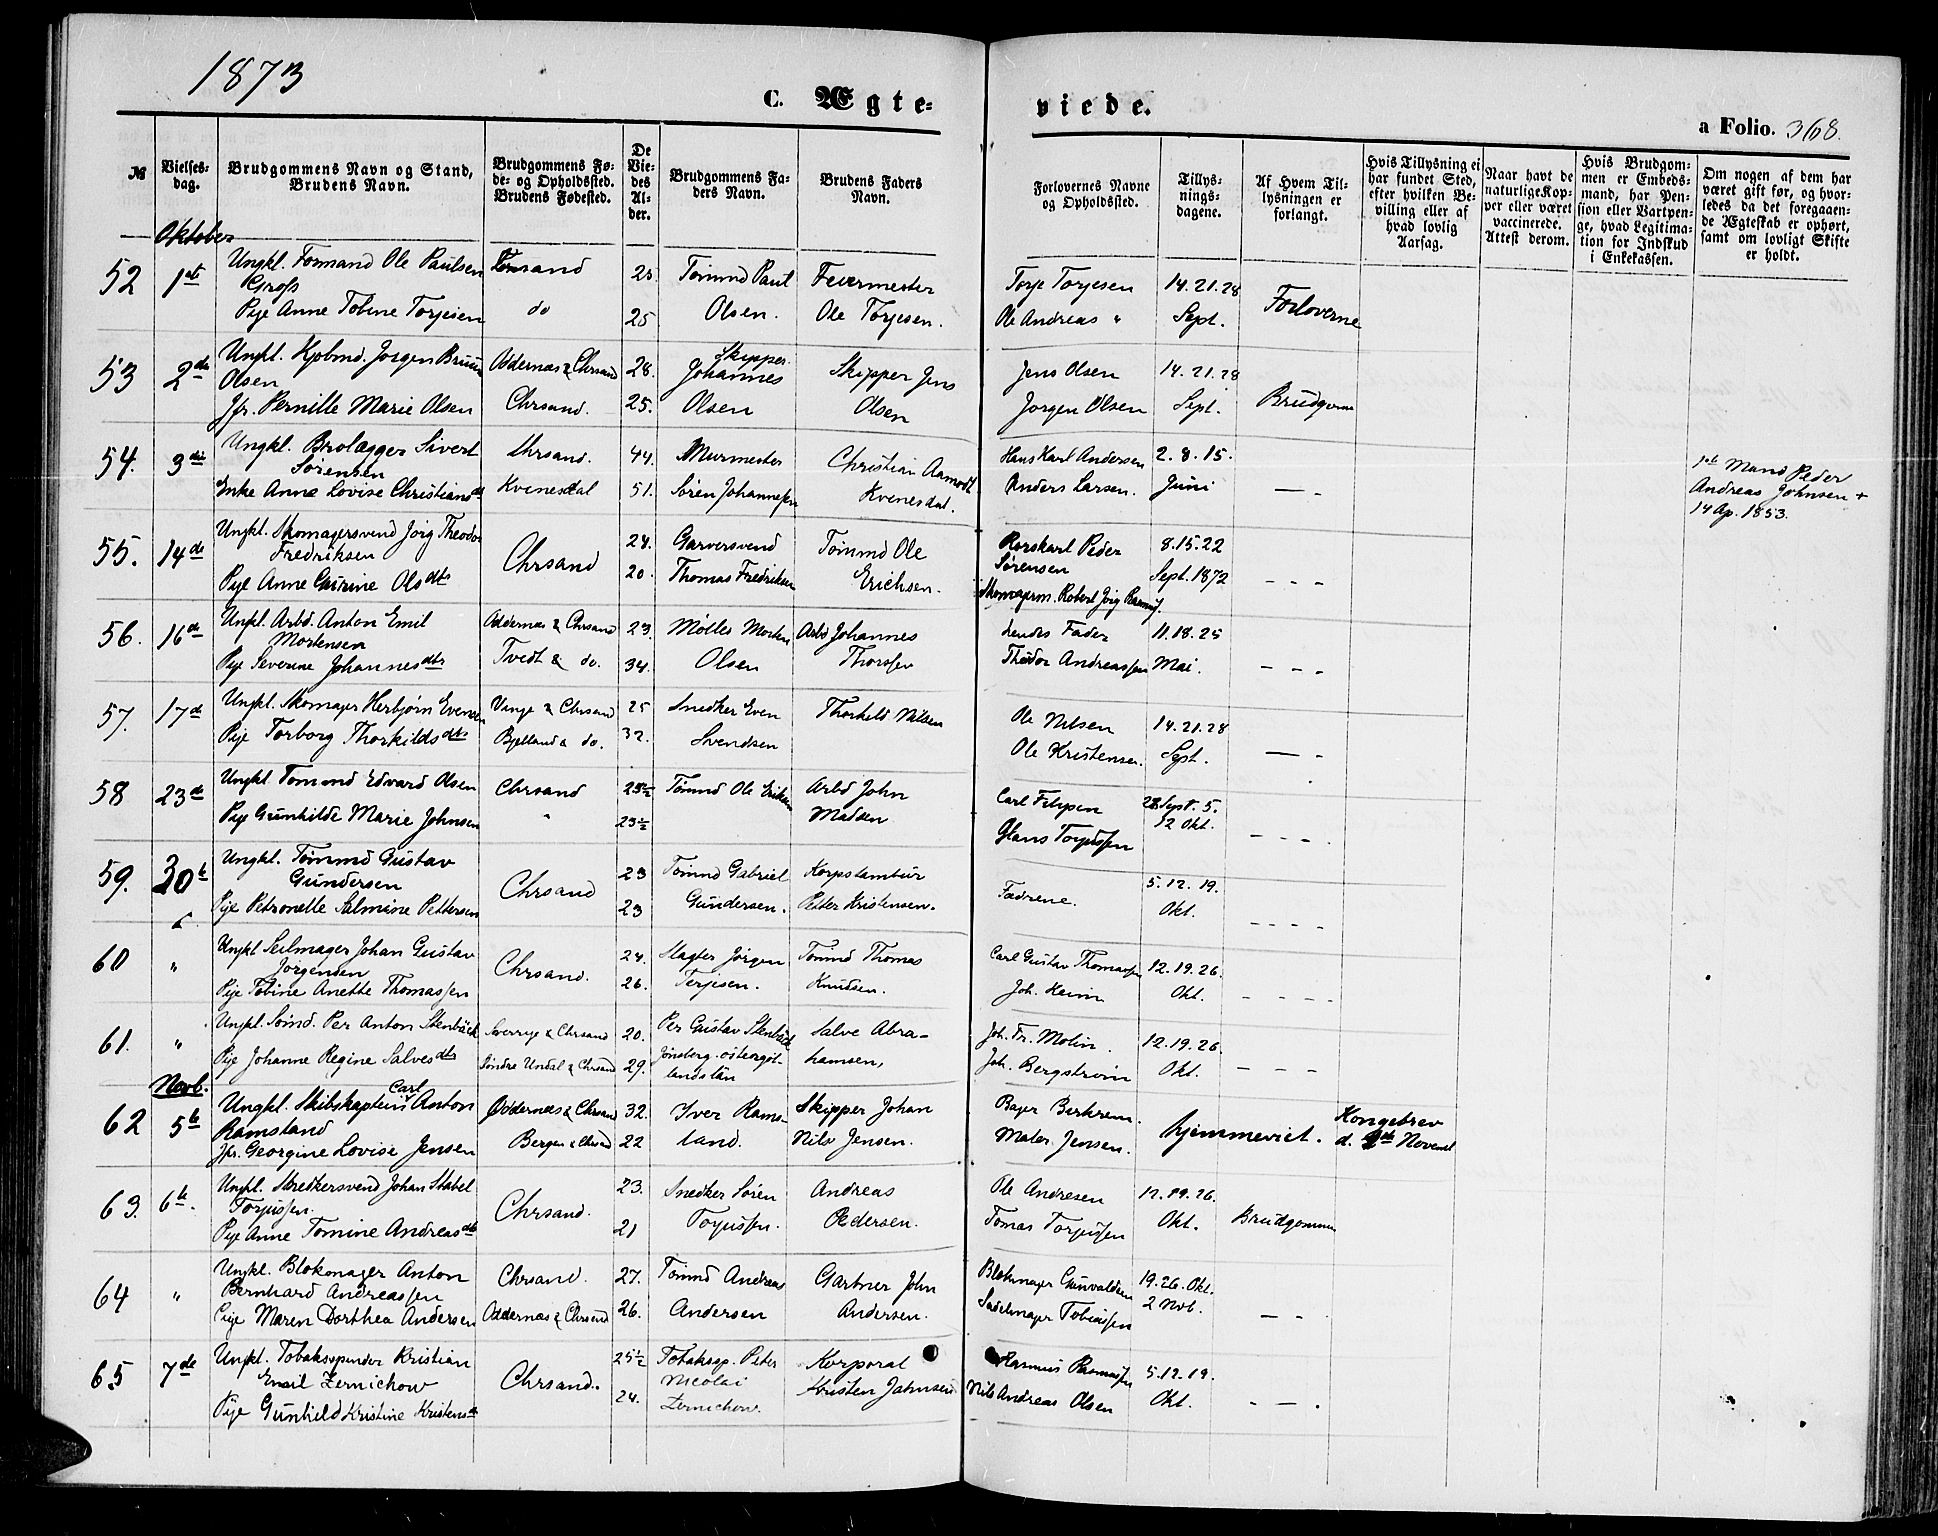 1873
C. Ægte- viede.
a Folio. 368.
№
Vielses-
dag.
Brudgommens Navn og Stand,
Brudens Navn.
Brudgommens Fø-
de- og Opholdssted.
Brudens Fødested.
De
Vie-
des
Al-
der.
Brudgommens Fa-
ders Navn.
Brudens Faders
Navn.
Forlovernes Navne
og Opholdssted.
Tillys-
nings-
dagene.
Af Hvem Til-
lysningen er
forlangt.
Hvis Tillysning ei
har fundet Sted,
efter hvilken Be-
villing eller af
hvad lovlig
Aarsag.
Naar havt de
naturlige Kop-
per eller været
vaccinerede.
Attest derom.
Hvis Brudgom-
men er Embeds-
mand, har Pen-
sion eller Vartpen-
ge, hvad Legitima-
tion for Indskud
i Enkekassen.
Om nogen af dem har
været gift før, og hvor-
ledes da det foregaaen-
de Ægteskab er ophørt,
samt om lovligt Skifte
er holdt.
Oktober
52 1ste Ungkl. Formand Ole Paulsen
Pige Anne Tobine Torjesen do 25
Tømmd Paul
Olsen.
Feiermester
Ole Torjesen.
Torje Torjesen
Ole Andreas "
14. 21. 28
Sept.
Forloverne
53 2den Ungkl. Kjøbmd. Jørgen Bruun
Olsen
Jfr. Pernille Marie Olsen
Oddernæs & Chrsand 28.
Chrsand. 25.
Skipper
Johannes
Olsen
Skipper Jens
Olsen
Jens Olsen
Jørgen Olsen
14. 21. 28
Sept.
Brudgomn
54. 3die Ungkl. Brolægger Sivert
Sørensen
Enke Anne Lovise Christiansd
Chrsand. 44.
Kvinesdal 51.
Murmester
Søren Johannesen
Christian Aamodt
Kvinesdal.
Hans Karl Andersen
Anders Larsen.
2. 8. 15.
Juni
— -
1ste Mand Peder
Andreas Johnsen +
14 Ap. 1853.
55. 14de Ungkl. Skomagersvend Jørg Theodor
Fredriksen
Pige Anne Olsdtr
Chrsand
24.
20.
Garversvend
Thomas Fredriksen
Tømmd Ole
Erichsen.
Peder
Sørensen
Skomagerm. Robert Jørg
8. 15. 22
Sept. 1872
- - -
56. 16de Ungkl. Arbd. Anton Emil
Mortensen
Pige Severine Johannesdtr
Oddernæs & Chrsand 23.
Tvedt & do. 34.
Møller Morten
Olsen
Arbd Johannes
Thorsen
Fader
Theodor Andreassen
11. 18. 25
Mai.
- - -
57. 17de Ungkl. Skomager Herbjørn Evensen
Pige Torborg Thorkildsdtr
Vinje & Chrsand 25
Bjelland & do. 32.
Snedker Even
Svendsen
Thorkild Nilsen
Ole Nilsen
Ole Kristensen.
14. 21. 28
Sept.
— -
58 23de Ungkl. Tømmd Edvard Olsen
Pige Gunhilde Marie Johnsen
Chrsand
"
23½
Tømmd Ole Eriksen
Arbd John
Madsen
Hans Torjussen
28 Sept. 5.
12 Okt.
- - -
59. 30te Ungkl. Tømmd Gustav
Gundersen
Pige Petronelle Salmine Pettersen
Chrsand
23
23
Tømmd Gabriel
Gundersen.
Korpstambur
Peter Kristensen.
Fædrene.
5. 12. 19.
Okt.
- - -
60 " Ungkl Seilmager Johan Gustav
Jørgensen
Pige Tobine Anette Thomassen
Chrsand.
24.
26.
Slagter Jørgen
Terjesen.
Tømmd Thomas
Knudsen.
Carl Gustav Thomassen
Joh. Heim
12. 19. 26.
Okt.
- - - -
61. " Ungkl. Sømd. Per Anton Stenbäck
Pige Johanne Regine Salvesdtr
Sverrige & Chrsand 20.
Søndre Undal & Chrsand 29.
Per Gustav Stenbäck
Jönsberg. östergöt-
landslän
Salve Abra-
hamsen,
Joh. Fr. Molin.
Joh. Bergström
12. 19. 26.
Okt.
- - -
Novb.
62 5te Ungkl. Skibskaptein Carl Anton
Ramsland
Jfr. Georgine Lovise Jensen
Oddernæs & Chrsand 32.
Bergen & Chrsand 22
Iver Rams-
land.
Skipper Johan
Nils Jensen.
Bager Birkrem
Maler Jensen.
hjemmeviet.
Kongebrev
63. 6te. Ungkl. Snedkersvend Johan Stabel
Torjussen.
Pige Anne Tomine Andreasdtr
Chrsand.
23.
21
Snedker Søren
Torjussen.
Andreas
Pedersen.
Ole Andresen
Tomas Torjussen
12. 19. 26.
Okt.
Brudgommen
64 " Ungkl. Blokmager Anton
Bernhard Andreassen
Pige Maren Dorthea Andersen
Chrsand. 27.
Oddernæs & Chrsand 26.
Tømmd Andreas
Andersen
Gartner John
Andersen.
Blokmager Gunvaldsen
Sadelmager Tobiassen
19. 26. Okt.
2 Nov.
— -
65 7de Ungkl. Tobaksspinder Kristian
Emil Zernichow
Pige Gunhild Kristine Kristensd
Chrsand.
25½
24.
Tobakssp. Peter
Nicolai
Zernichow.
Korporal
Kristen Jahnsen
Rasmus Rasmussen
Nils Andreas Olsen
5. 12. 19.
Okt.
- — -